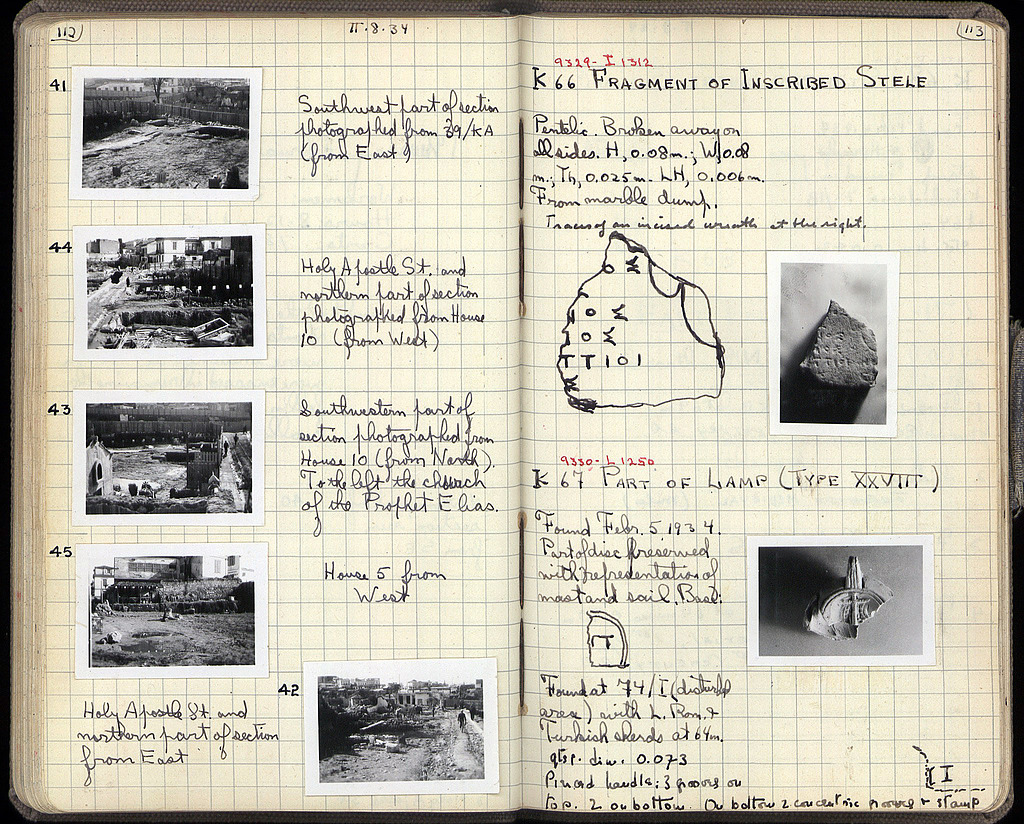 112
II.8.34
41
Southwest part of section
photographed from 39/KA
(from East)
44
Holy Apostle St. and
northern part of section
photographed from House
10 (from West)
43
Southwestern part of
section photographed from
House 10 (from North).
To the left the church
of the Prophet Elias.
45
House 5 from
West
42
Holy Apostle St. and
northern part of section
from East
113
9329- I 1312
K 66 FRAGMENT OF INSCRIBED STELE
Pentelic. Broken away on
all sides. H, 0.08m.; W, 0.08
m.; Th, 0.025m. LH, 0.006m.
From marble dump.
Traces of an incised wreath at the right.
9330- L 1250
K 67 PART OF LAMP (TYPE XXVIII)
Found Febr. 5. 1934.
Part of disc preserved
with representation of
mast and sail. Base:
Found at 74/I (disturbed
area) with L. Rom. &
Turkish sherds at 64m.
dim. 0.073
Pierced handle: 3 grooves on
top. 2 on bottom. On bottom 2 concentric grooves & stamp